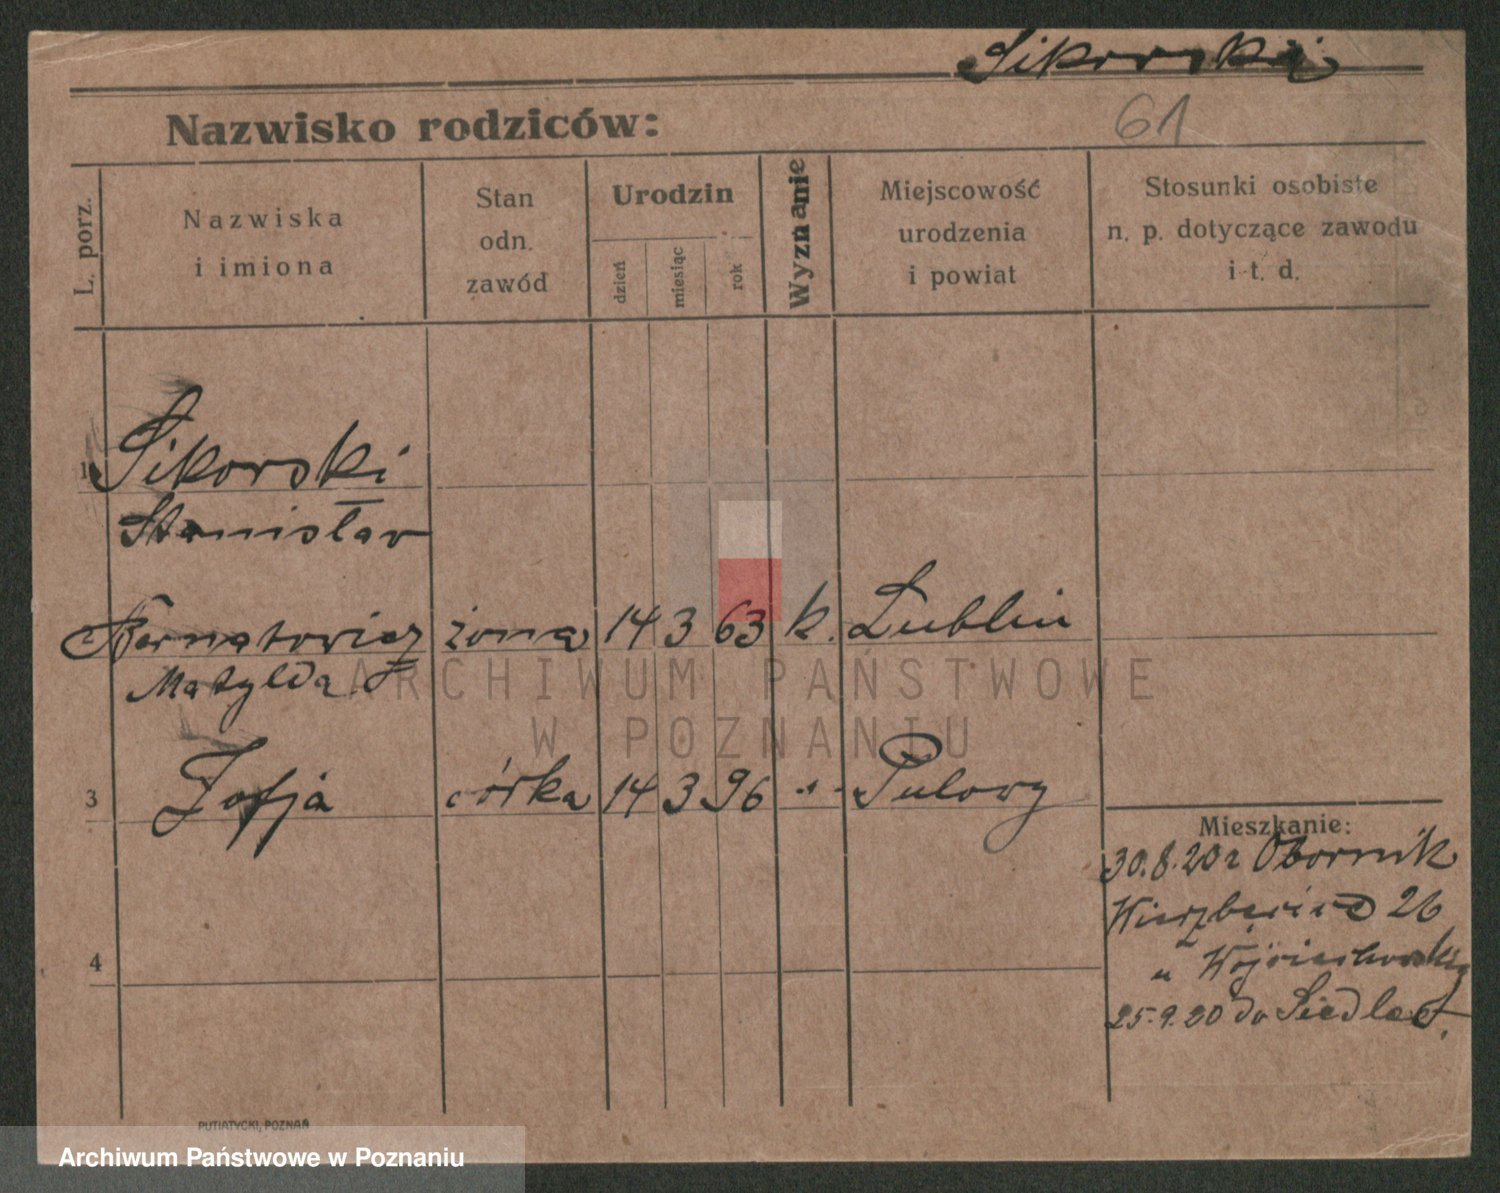 Sikorski
Nazwisko rodziców:
61
L. porz.
Nazwiska
i imiona
Stan
odn.
zawód
Urodzin
dzień
miesiąc
rok
Wyznanie
Miejscowość
urodzenia
i powiat
Stosunki osobiste
n. p. dotyczące zawodu
i t. d.
1 Sikorski
Stanisław
Bernatowicz żona 14 3 63 k. Lublin
Matylda
3 Zofja córka 14 3 96 " Pulawy
Mieszkanie:
30.8.20 r Obornik
26
u
25.9.20 do Siedlec.
4
PUTIATYCKI, POZNAŃ
ARCHIWUM PAŃSTWOWE
W POZNANIU
Archiwum Państwowe w Poznaniu